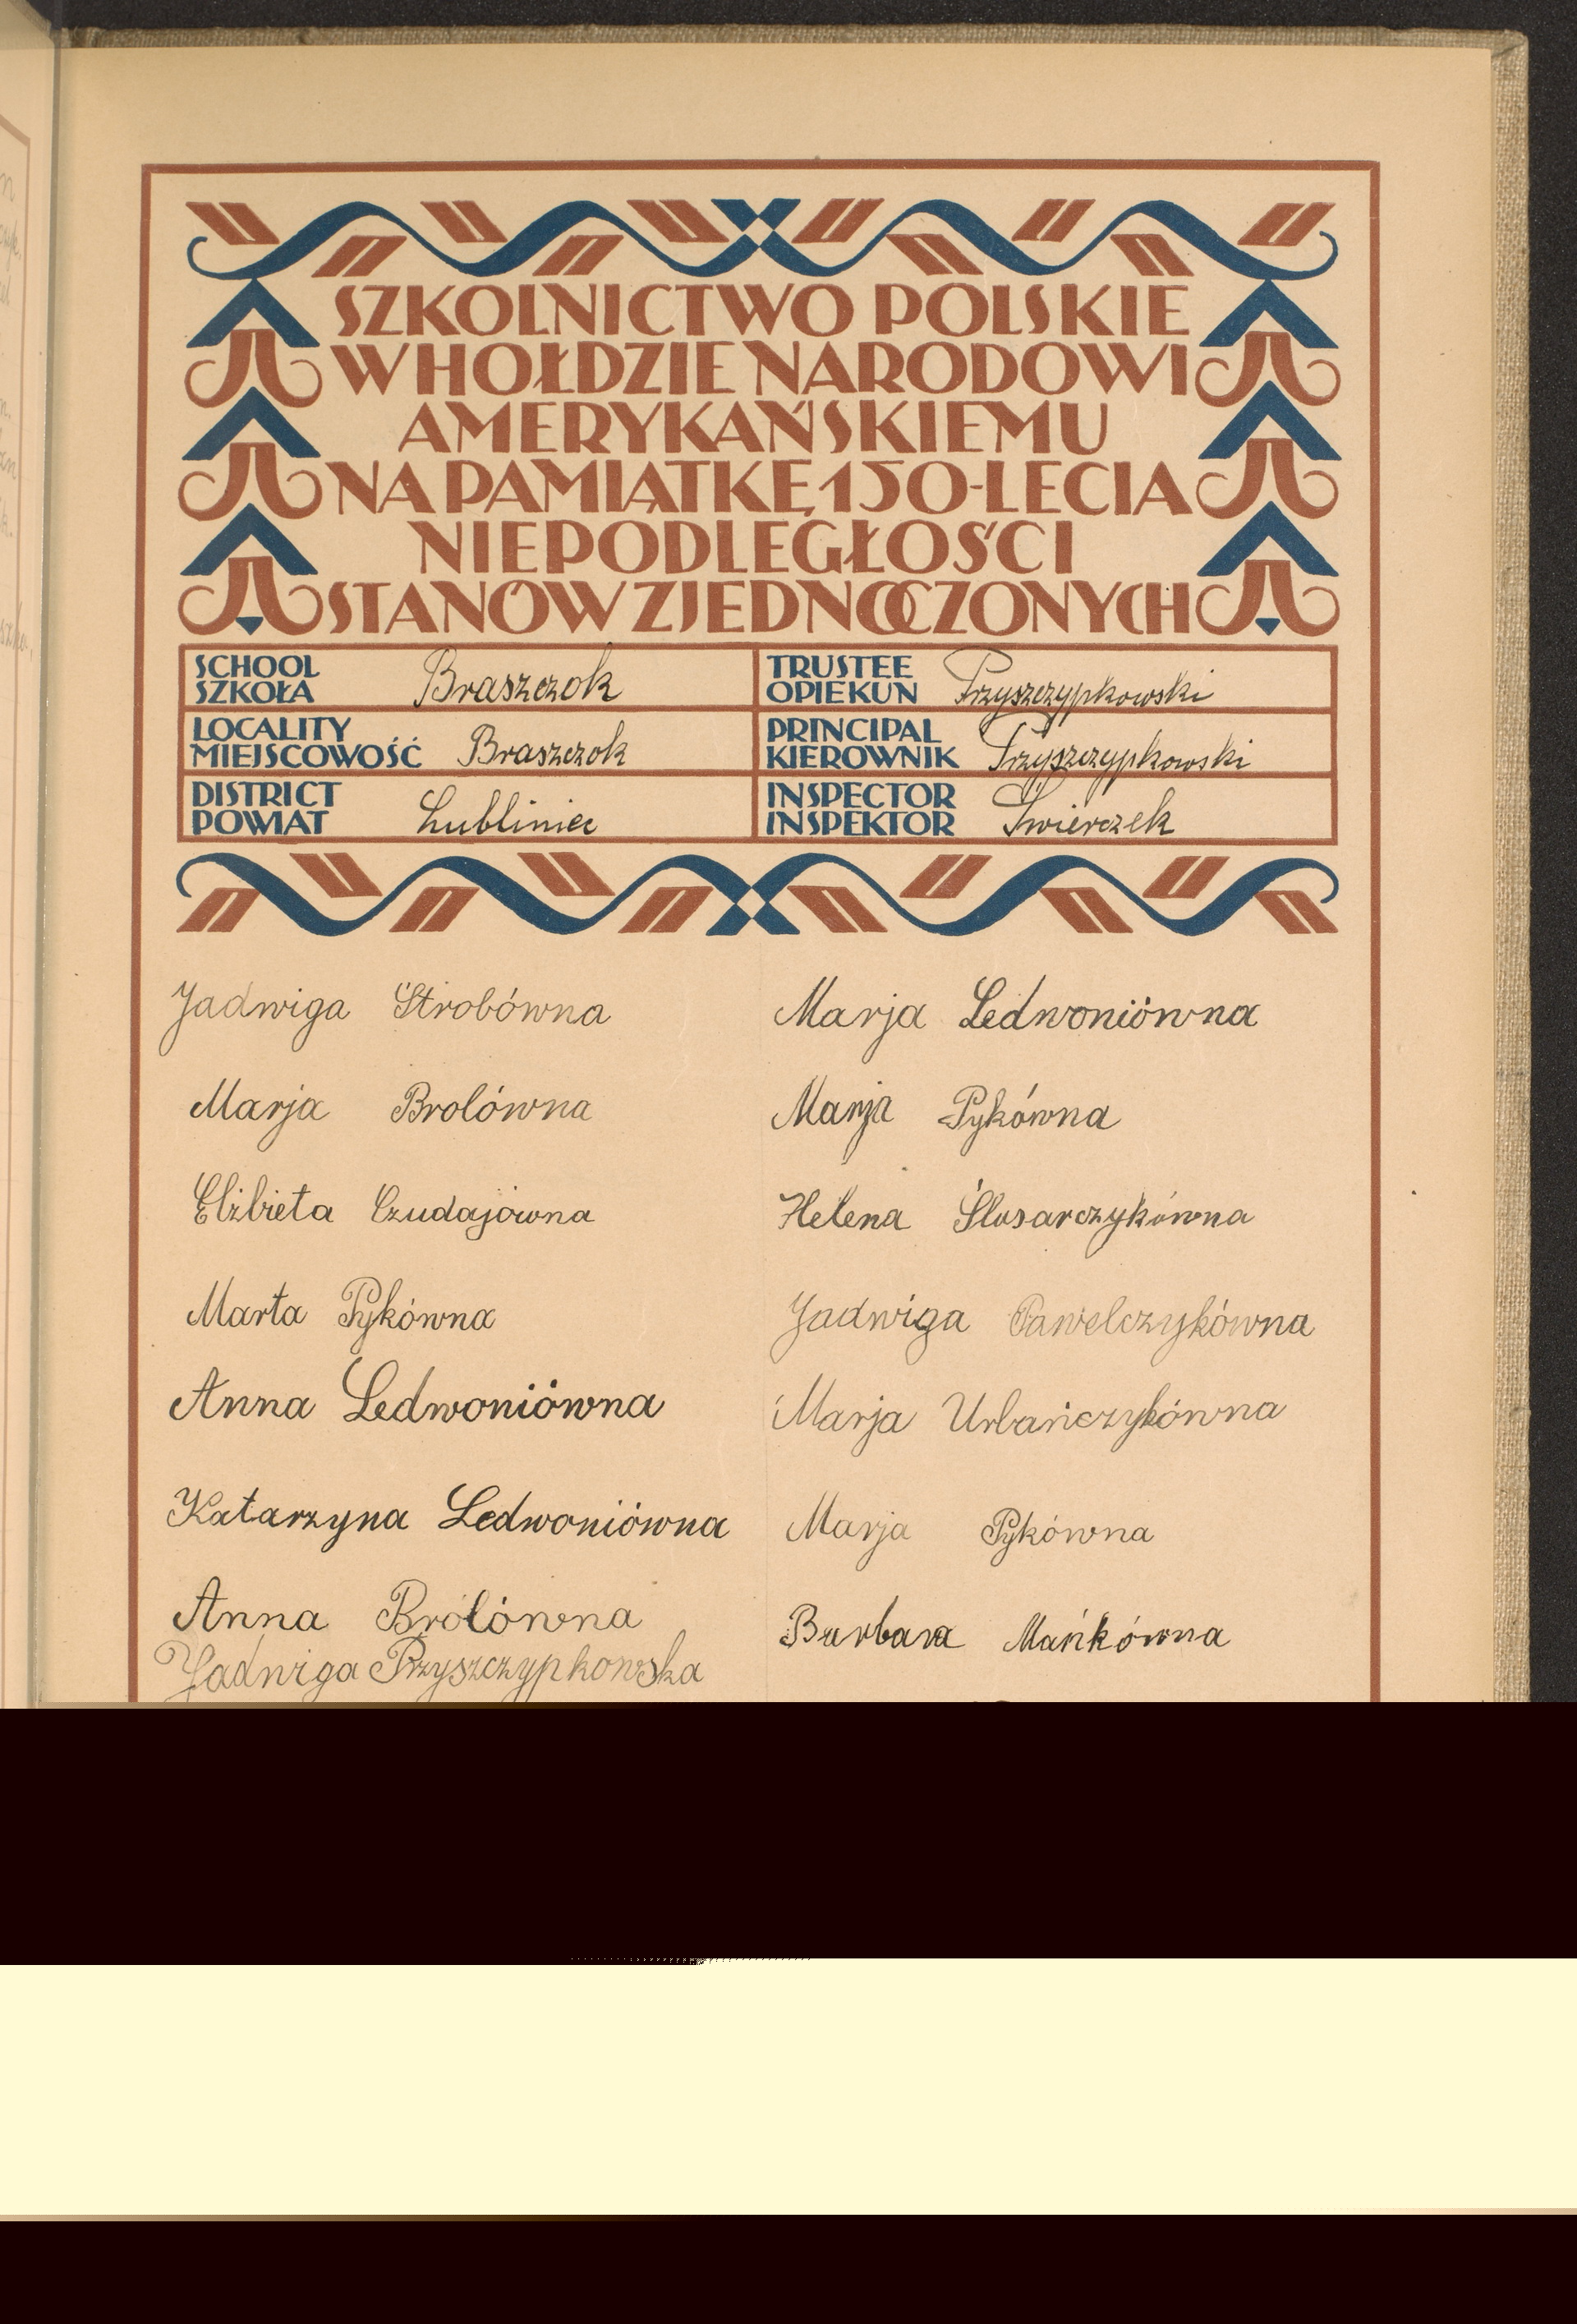 SZKOLNICTWO POLSKIE
W HOŁDZIE NARODOWI
AMERYKAŃSKIEMU
NA PAMIĄTKĘ 150-LECIA
NIEPODLEGŁOŚCI
STANÓW ZJEDNOCZONYCH
SCHOOL
SZKOŁA Braszczok
TRUSTEE
OPIEKUN Przyszczypkowski
LOCALITY
MIEJSCOWOŚĆ Braszczok
PRINCIPAL
KIEROWNIK Przyszczypkowski
DISTRICT
POWIAT Lubliniec
INSPECTOR
INSPEKTOR Świerczek
Jadwiga Strobówna
Marja Brolówna
Elżbieta Czudajówna
Marta Pykówna
Anna Ledwoniówna
Katarzyna Ledwoniówna
Anna Brolówna
Jadwiga Przyszczypkowska
Marja Ledwoniówna
Marja Pykówna
Helena Ślusarczykówna
Jadwiga Pawelczykówna
Marja Urbańczykówna
Marja Pykówna
Barbara Mańkówna